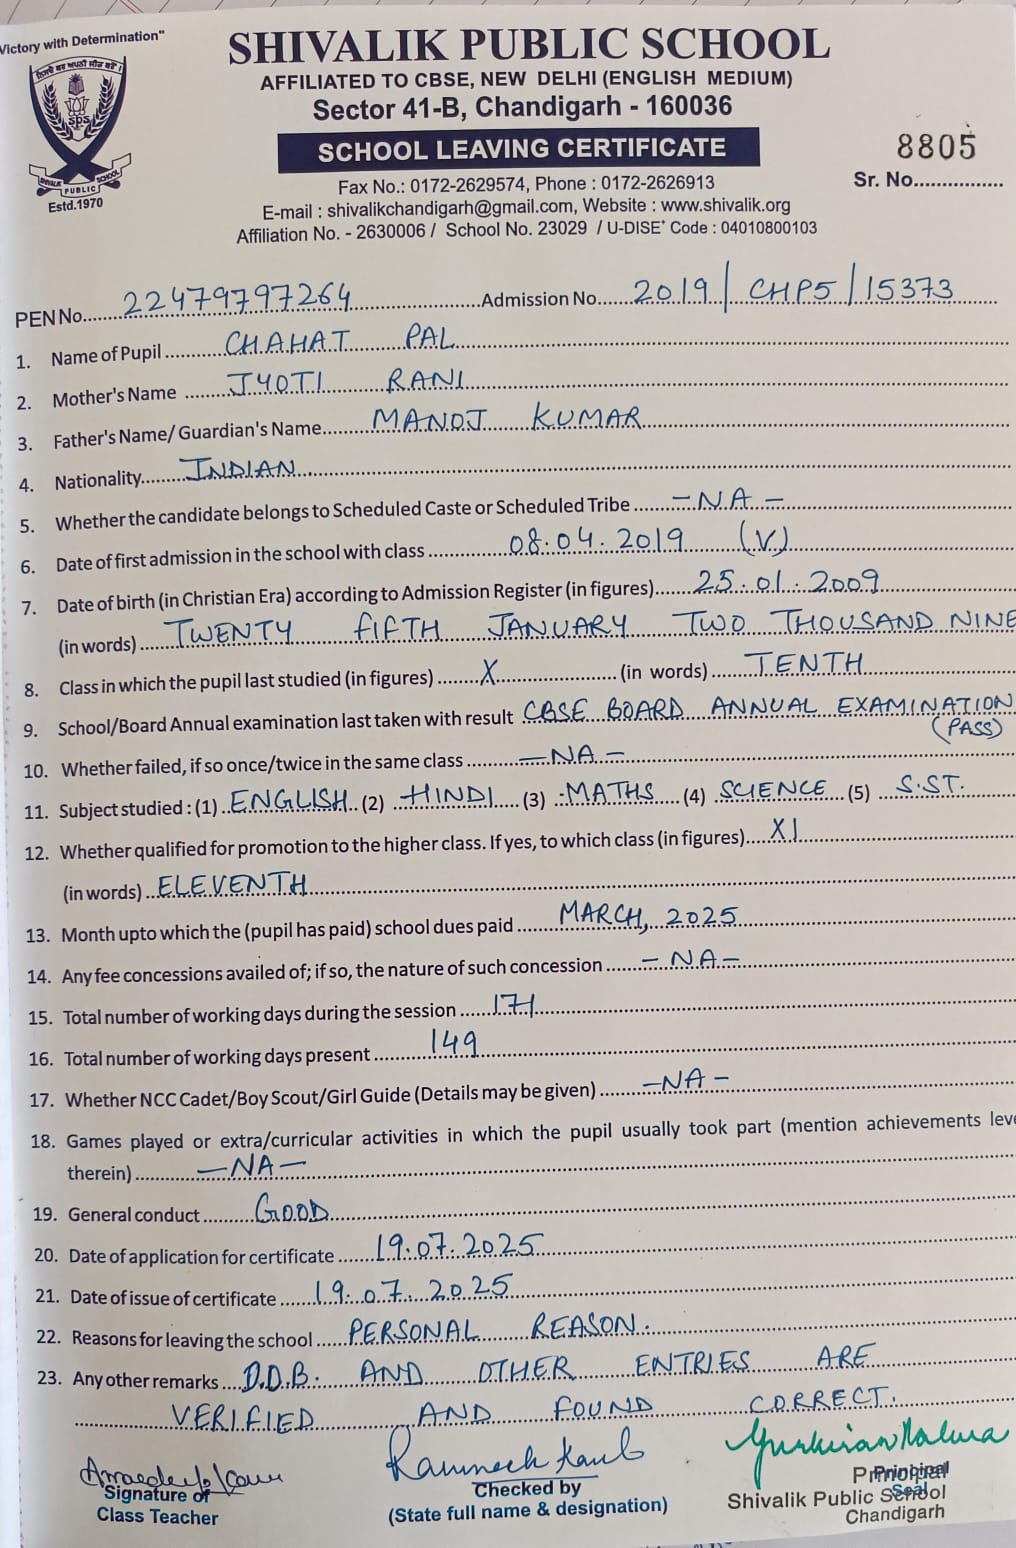 Victory with Determination"
SHIVALIK PUBLIC SCHOOL
AFFILIATED TO CBSE, NEW DELHI (ENGLISH MEDIUM)
Sector 41-B, Chandigarh - 160036
SCHOOL LEAVING CERTIFICATE
8805
Sr. No.
SPS
SHIVALIK PUBLIC SCHOOL
Estd.1970
Fax No.: 0172-2629574, Phone : 0172-2626913
E-mail : shivalikchandigarh@gmail.com, Website : www.shivalik.org
Affiliation No. - 2630006 / School No. 23029 / U-DISE+ Code : 04010800103
PEN No. 22479797264 Admission No. 2019/CHP5/15373
1. Name of Pupil CHAHAT PAL
2. Mother's Name JYOTI RANI
3. Father's Name/ Guardian's Name MANOJ KUMAR
4. Nationality INDIAN
5. Whether the candidate belongs to Scheduled Caste or Scheduled Tribe -NA-
6. Date of first admission in the school with class 08.04.2019 (V)
7. Date of birth (in Christian Era) according to Admission Register (in figures) 25.01.2009
(in words) TWENTY FIFTH JANUARY TWO THOUSAND NINE
8. Class in which the pupil last studied (in figures) X (in words) TENTH
9. School/Board Annual examination last taken with result CBSE BOARD ANNUAL EXAMINATION
(PASS)
10. Whether failed, if so once/twice in the same class -NA-
11. Subject studied : (1) ENGLISH (2) HINDI (3) MATHS (4) SCIENCE (5) S.ST.
12. Whether qualified for promotion to the higher class. If yes, to which class (in figures) XI
(in words) ELEVENTH
13. Month upto which the (pupil has paid) school dues paid MARCH, 2025
14. Any fee concessions availed of; if so, the nature of such concession -NA-
15. Total number of working days during the session 171
16. Total number of working days present 149
17. Whether NCC Cadet/Boy Scout/Girl Guide (Details may be given) -NA-
18. Games played or extra/curricular activities in which the pupil usually took part (mention achievements leve
therein) -NA-
19. General conduct GOOD
20. Date of application for certificate 19.07.2025
21. Date of issue of certificate 19.07.2025
22. Reasons for leaving the school PERSONAL REASON.
23. Any other remarks D.O.B. AND OTHER ENTRIES ARE
VERIFIED AND FOUND CORRECT.
Signature of
Class Teacher
Checked by
(State full name & designation)
Principal
Seal
Principal
Shivalik Public School
Chandigarh